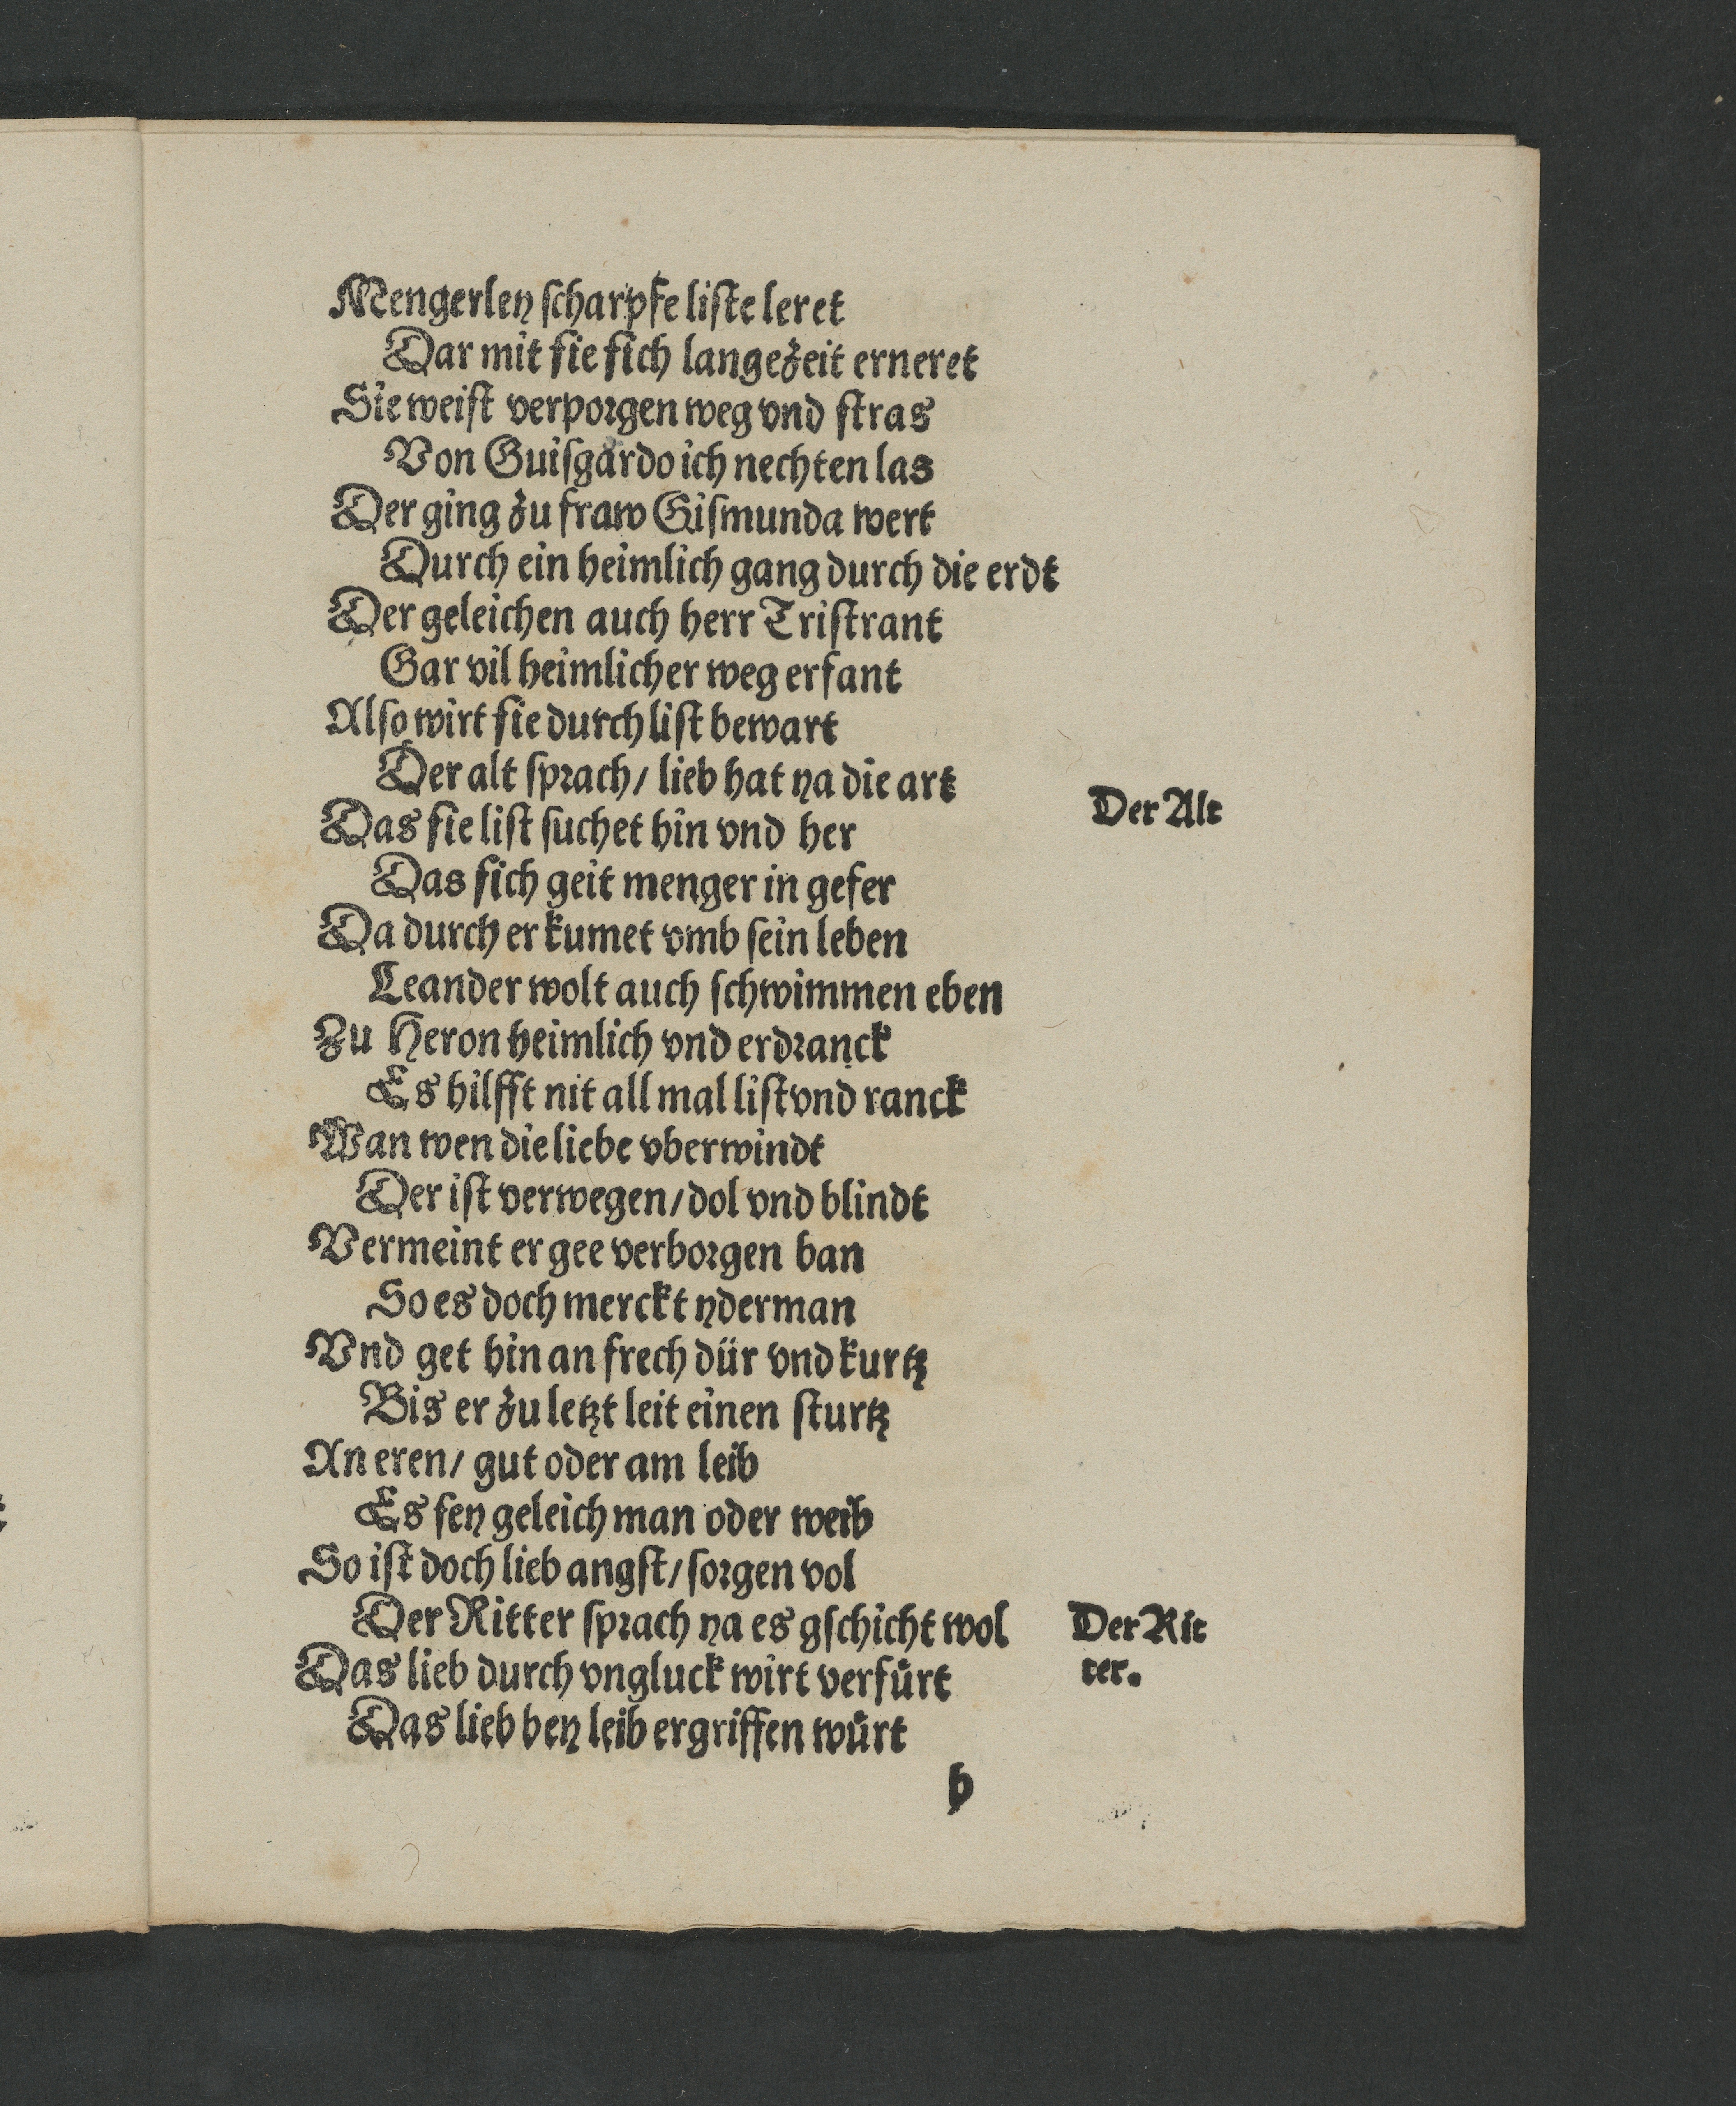 Mengerley ſcharpfe liſte leret
Dar mit ſie ſich lange zeit erneret
Sie weiſt verporgen weg vnd ſtras
Von Guiſgardo ich nechten las
Der ging zu fraw Giſmunda wert
Durch ein heimlich gang durch die erdt
Der geleichen auch herr Triſtrant
Gar vil heimlicher weg erfant
Alſo wirt ſie durch liſt bewart
Der alt ſprach / lieb hat ya die art
Der Alt
Das ſie liſt ſuchet hin vnd her
Das ſich geit menger in gefer
Da durch er kumet vmb ſein leben
Leander wolt auch ſchwimmen eben
Zu Heron heimlich vnd erdranck
Es hilfft nit all mal liſt vnd ranck
Wan wen die liebe vberwindt
Der iſt verwegen / dol vnd blindt
Vermeint er gee verborgen ban
So es doch merckt yderman
Vnd get hin an frech dür vnd kurtz
Bis er zu letzt leit einen ſturtz
An eren / gut oder am leib
Es ſey geleich man oder weib
So iſt doch lieb angſt / ſorgen vol
Der Ritter ſprach ya es gſchicht wol
Der Rit
ter.
Das lieb durch vngluck wirt verfuͤrt
Das lieb bey leib ergriffen wuͤrt
b